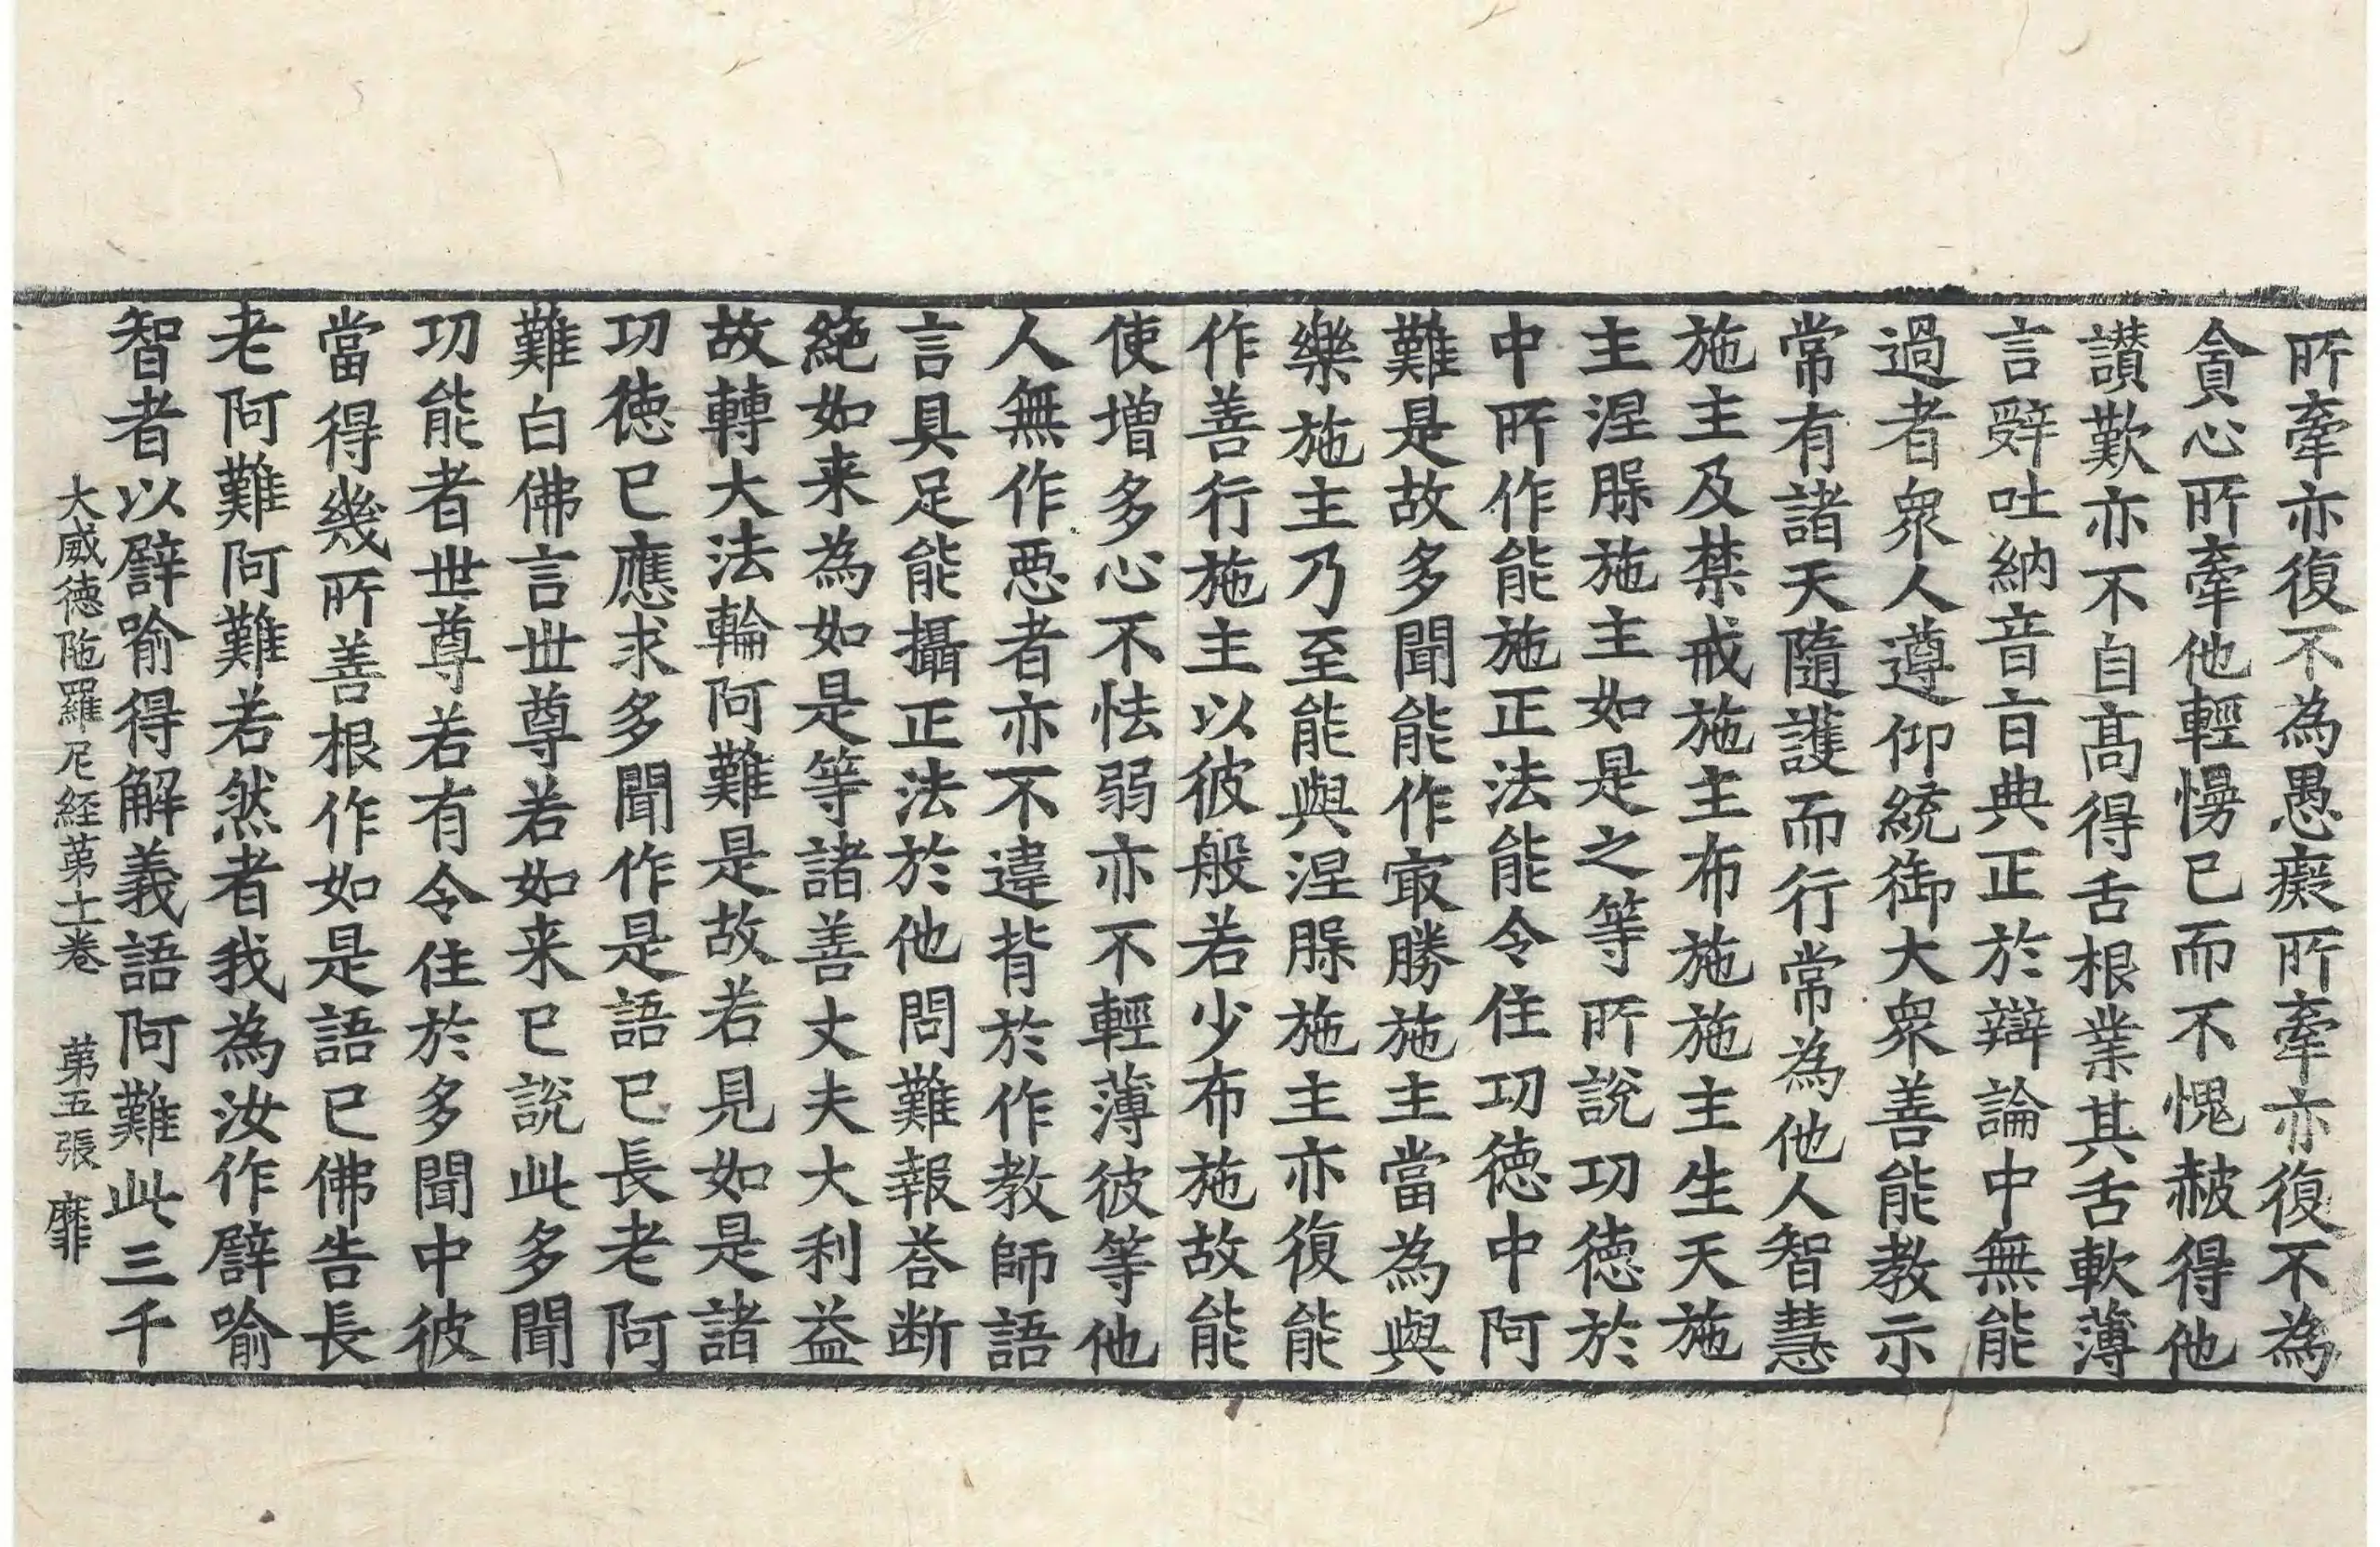 所牽亦復不為愚癡所牽亦復不為
貪心所牽他輕慢已而不愧赧得他
讃歎亦不自髙得舌根業其舌軟薄
言辤吐納音㫖典正於辯論中無能
過者衆人遵仰統御大衆善能教示
常有諸天隨護而行常為他人智慧
施主及禁戒施主布施施主生天施
主涅槃施主如是之等所說功徳於
中所作能施正法能令住功徳中阿
難是故多聞能作㝡勝施主當為與
樂施主乃至能與涅槃施主亦復能
作善行施主以彼般若少布施故能
使增多心不怯弱亦不輕薄彼等他
人無作惡者亦不違背於作教師語
言具足能攝正法於他問難報荅断
絶如来為如是等諸善丈夫大利益
故轉大法輪阿難是故若見如是諸
功徳已應求多聞作是語已長老阿
難白佛言世尊若如来已說此多聞
功能者世尊若有令住於多聞中彼
當得幾所善根作如是語已佛告長
老阿難阿難若然者我為汝作譬喻
智者以譬喻得解義語阿難此三千
大威徳陁羅尼経苐十一卷　苐五張　靡